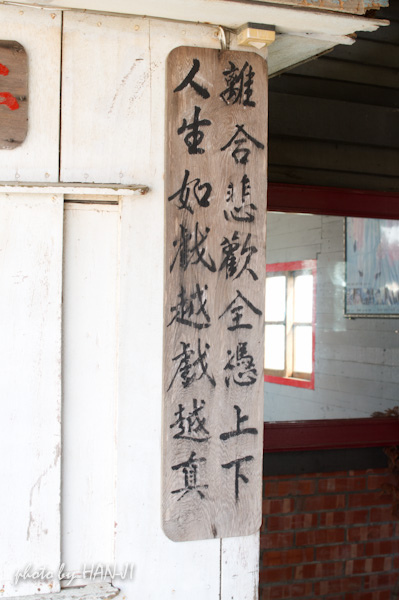 離合悲歡全憑上下
人生如戲越戲越真
photo by HAN-JI